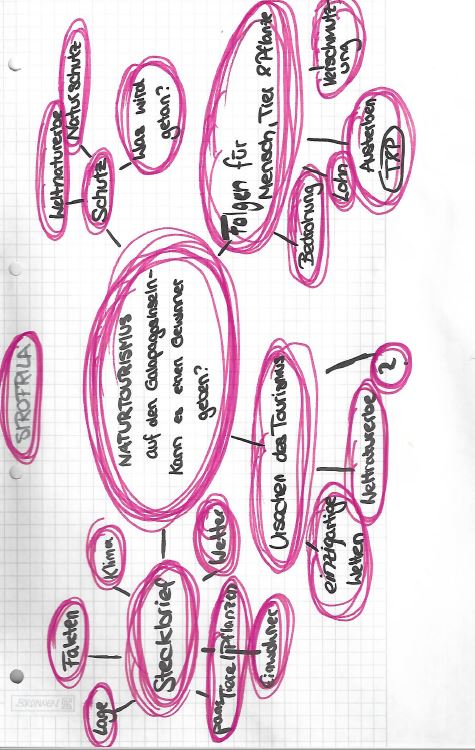 Lage
Fakten
Klima
Steckbrief
Wetter
Tiere/Pflanzen
Einwohner
NATURTOURISMUS
auf den Galapagosinseln -
Kann es einen Gewinner
geben?
Weltnaturerbe
Naturschutz
Schutz
Was wird
getan?
Folgen für
Mensch, Tier & Pflanze
Verschmutz
ung
Bedrohung
Lohn
Aussterben
Ursachen des Tourismus
einzigartige
Welten
Weltnaturerbe